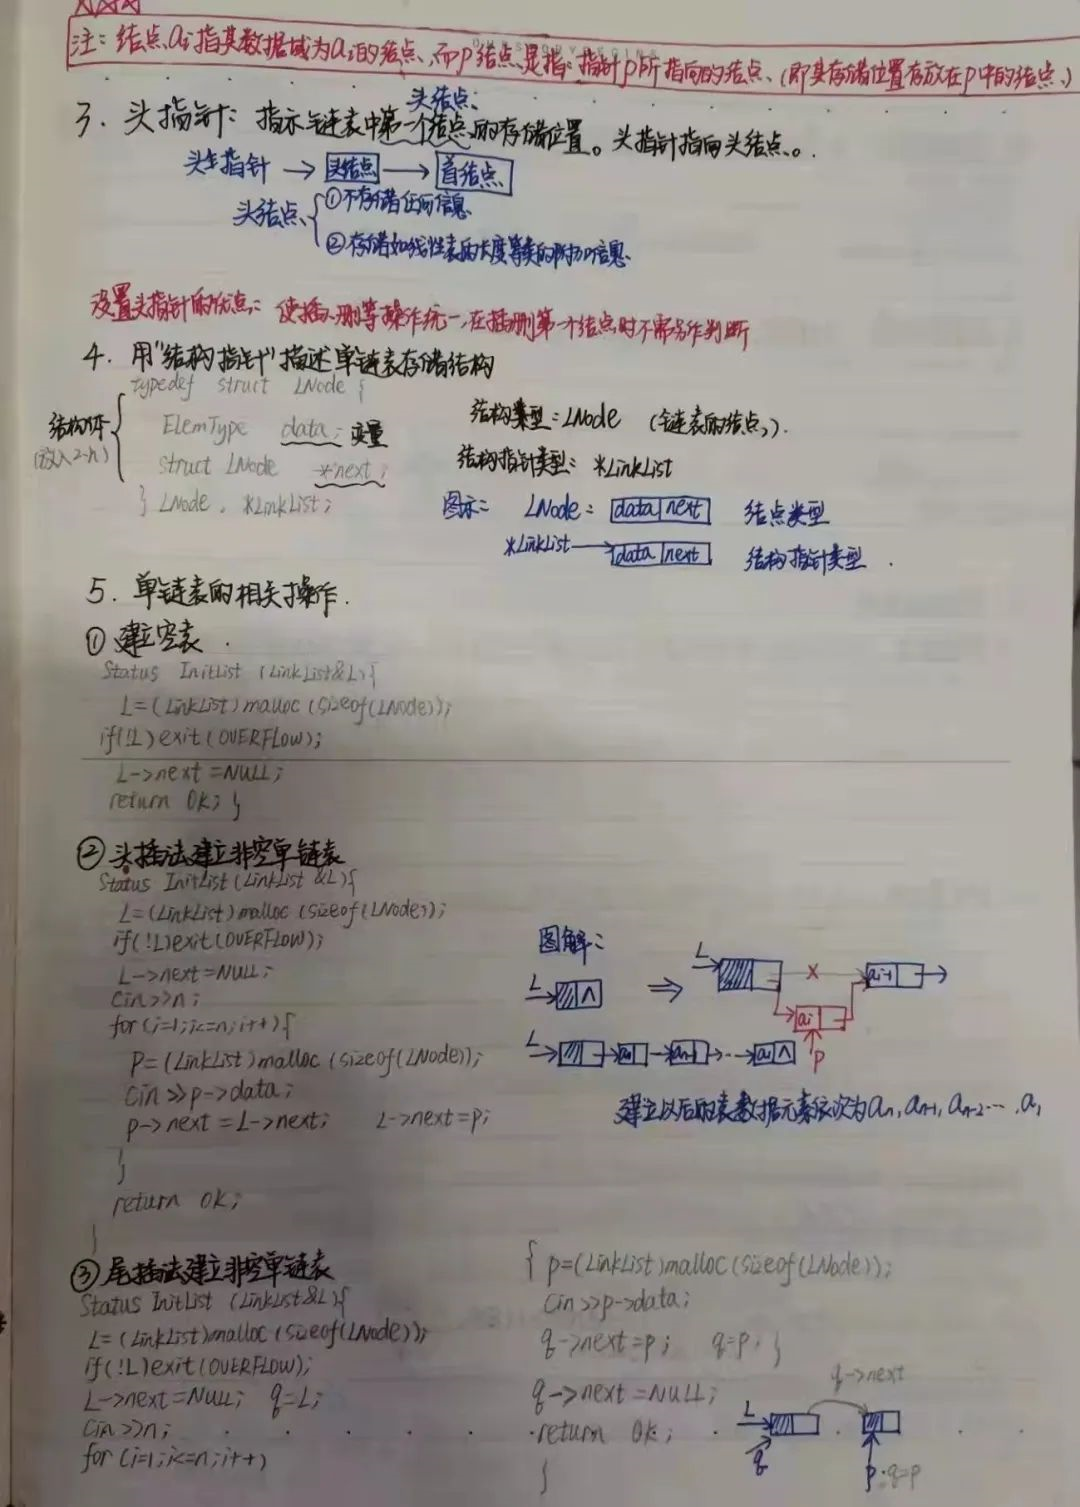 注：结点ai指其数据域为ai的结点、而p结点是指：指针p所指向的结点、(即其存储位置存放在p中的结点、)
头结点
3. 头指针：指示链表中第一个结点的存储位置。头指针指向头结点。
头指针 → 头结点 → 首结点
头结点 ①不存储任何信息
②存储如线性表的长度等类的附加信息
设置头指针的优点：使插、删等操作统一,在插删第一个结点时不需另作判断
4. 用"结构指针"描述单链表存储结构
typedef struct LNode {
结构体 ElemType data; 变量
struct LNode *next;
} LNode, *LinkList;
结构类型：LNode (链表的结点)
结构指针类型：*LinkList
图示： LNode： data next 结点类型
*LinkList → data next 结构指针类型
5. 单链表的相关操作.
① 建立空表
Status InitList (LinkList&L){
L=(LinkList)malloc(sizeof(LNode));
if(!L)exit(OVERFLOW);
L->next=NULL;
return Ok; }
② 头插法建立非空单链表
Status InitList(LinkList &L){
L=(LinkList)malloc(sizeof(LNode));
if(!L)exit(OVERFLOW);
L->next=NULL;
cin>>n;
for(i=1;i<=n;i++){
P=(LinkList)malloc(sizeof(LNode));
cin>>p->data;
p->next=L->next; L->next=p;
}
return ok;
}
图解：
L ∧ ⇒ L × ai-1
ai
p
L an an-1 … a1 ∧
建立以后的表数据元素依次为an,an-1,an-2…,a1
③ 尾插法建立非空单链表
Status InitList (LinkList&L){
L=(LinkList)malloc(sizeof(LNode));
if(!L)exit(OVERFLOW);
L->next=NULL; q=L;
cin>>n;
for(i=1;i<=n;i++)
{ p=(LinkList)malloc(sizeof(LNode));
cin>>p->data;
q->next=p; q=p; }
q->next=NULL;
return Ok;
}
q->next
L
q
p q=p